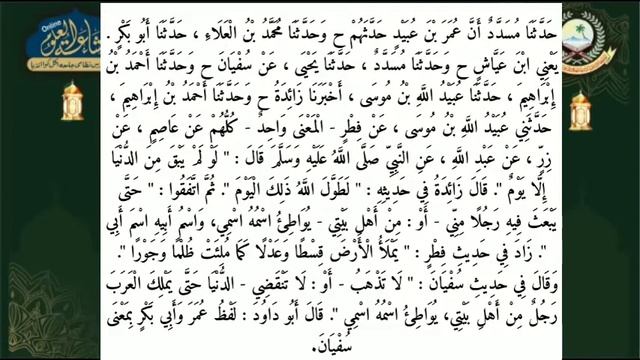 Online
حَدَّثَنَا مُسَدَّدٌ أَنَّ عُمَرَ بْنَ عُبَيْدٍ حَدَّثَهُمْ ح وَحَدَّثَنَا مُحَمَّدُ بْنُ الْعَلَاءِ ، حَدَّثَنَا أَبُو بَكْرٍ .
يَعْنِي ابْنَ عَيَّاشٍ ح وَحَدَّثَنَا مُسَدَّدٌ ، حَدَّثَنَا يَحْيَى ، عَنْ سُفْيَانَ ح وَحَدَّثَنَا أَحْمَدُ بْنُ
إِبْرَاهِيمَ ، حَدَّثَنَا عُبَيْدُ اللَّهِ بْنُ مُوسَى ، أَخْبَرَنَا زَائِدَةُ ح وَحَدَّثَنَا أَحْمَدُ بْنُ إِبْرَاهِيمَ ،
حَدَّثَنِي عُبَيْدُ اللَّهِ بْنُ مُوسَى ، عَنْ فِطْرٍ - الْمَعْنَى وَاحِدٌ - كُلُّهُمْ عَنْ عَاصِمٍ ، عَنْ
زِرٍّ ، عَنْ عَبْدِ اللَّهِ ، عَنِ النَّبِيِّ صَلَّى اللَّهُ عَلَيْهِ وَسَلَّمَ قَالَ : " لَوْ لَمْ يَبْقَ مِنَ الدُّنْيَا
إِلَّا يَوْمٌ ". قَالَ زَائِدَةُ فِي حَدِيثِهِ : " لَطَوَّلَ اللَّهُ ذَلِكَ الْيَوْمَ ". ثُمَّ اتَّفَقُوا : " حَتَّى
يَبْعَثَ فِيهِ رَجُلًا مِنِّي - أَوْ : مِنْ أَهْلِ بَيْتِي - يُوَاطِئُ اسْمُهُ اسْمِي، وَاسْمُ أَبِيهِ اسْمَ أَبِي
". زَادَ فِي حَدِيثِ فِطْرٍ : " يَمْلَأُ الْأَرْضَ قِسْطًا وَعَدْلًا كَمَا مُلِئَتْ ظُلْمًا وَجَوْرًا ".
وَقَالَ فِي حَدِيثِ سُفْيَانَ : " لَا تَذْهَبُ - أَوْ : لَا تَنْقَضِي - الدُّنْيَا حَتَّى يَمْلِكَ الْعَرَبَ
رَجُلٌ مِنْ أَهْلِ بَيْتِي، يُوَاطِئُ اسْمُهُ اسْمِي ". قَالَ أَبُو دَاوُدَ : لَفْظُ عُمَرَ وَأَبِي بَكْرٍ بِمَعْنَى
سُفْيَانَ.